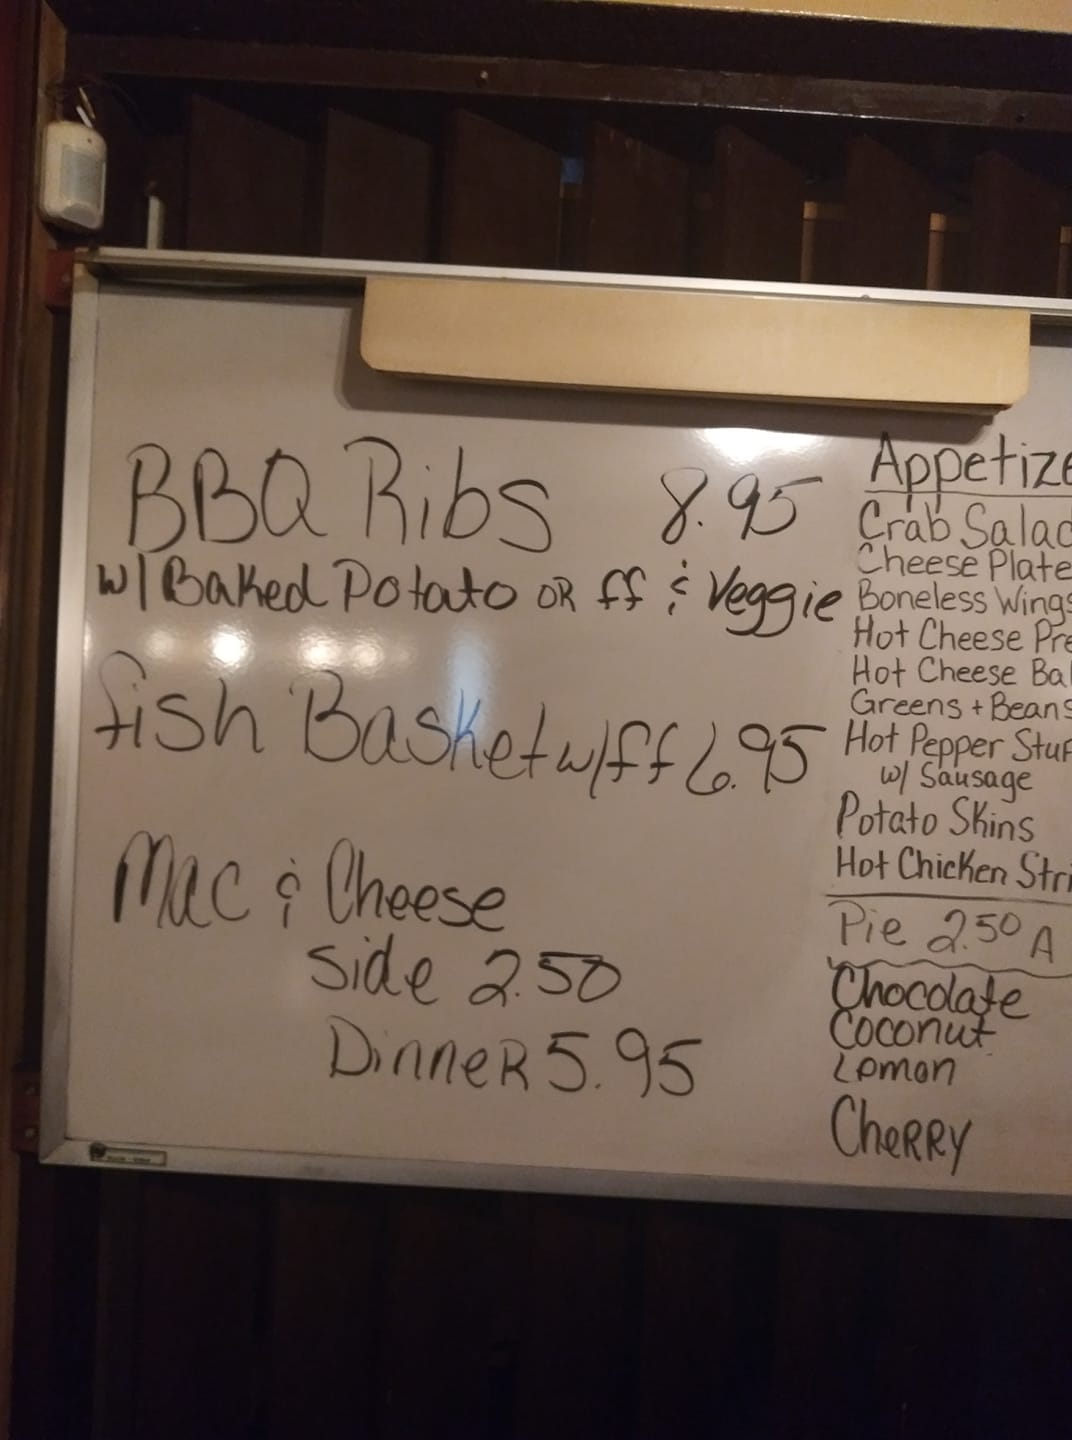 BBQ Ribs 8.95
w/ Baked Potato OR ff & Veggie
fish Basket w/ ff 6.95
Mac & Cheese
Side 2.50
Dinner 5.95
Appetize
Crab Salad
Cheese Plate
Boneless Wings
Hot Cheese Pre
Hot Cheese Bal
Greens + Beans
Hot Pepper Stuf
w/ Sausage
Potato Skins
Hot Chicken Stri
Pie 2.50 A
Chocolate
Coconut
Lemon
CheRRY